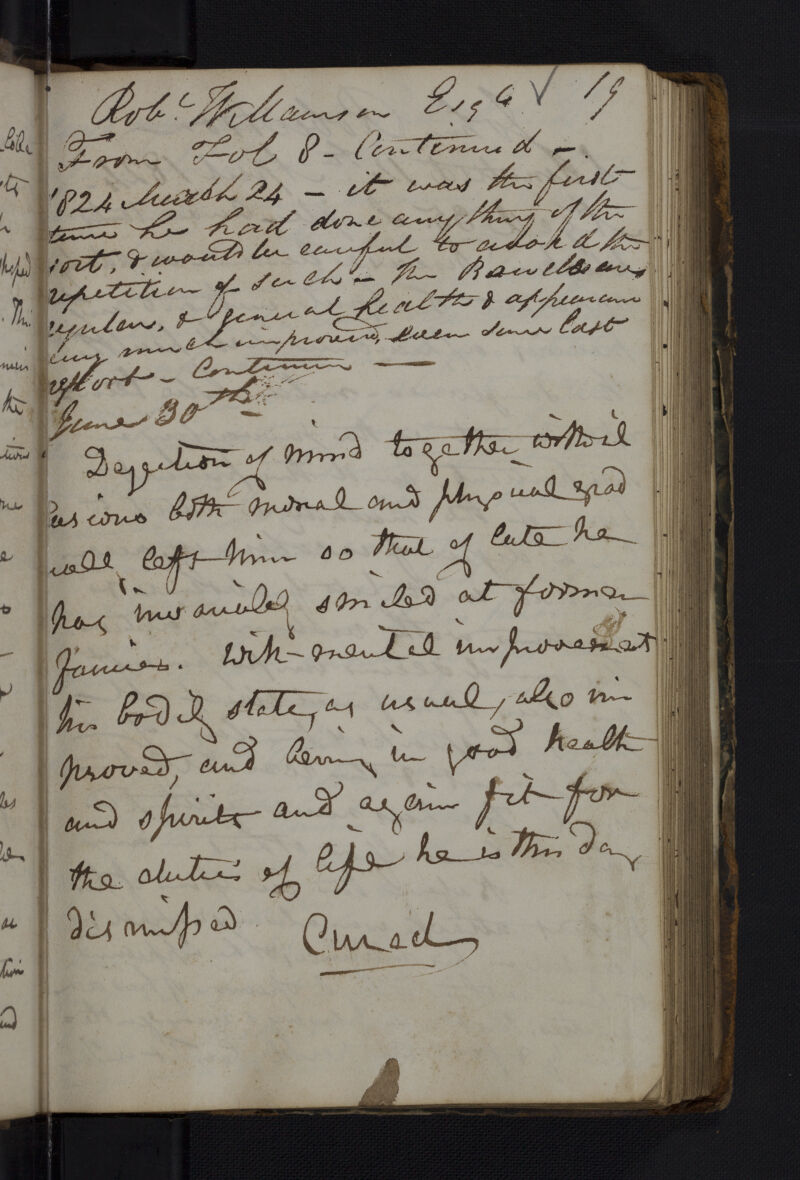 Robt Williamson Esqr ✓ 19
From Fol 8 - Continued -
1824 March 24 - it was the first
time he had done any thing of the
sort, & would be careful to avoid the
repetition of such - The Bowels are
regular, & general health & appearance
being much improved, even since last
report - Continue -
June 30th -
Dejection of mind together with il
lusions both moral and physical grad
ually left him so that of late he
has invariably smiled at former
fancies. With mental improvement
his bodily state, as usual, also im
proved, and being in good health
and spirits and again fit for
the duties of life he is this day
dismissed Cured